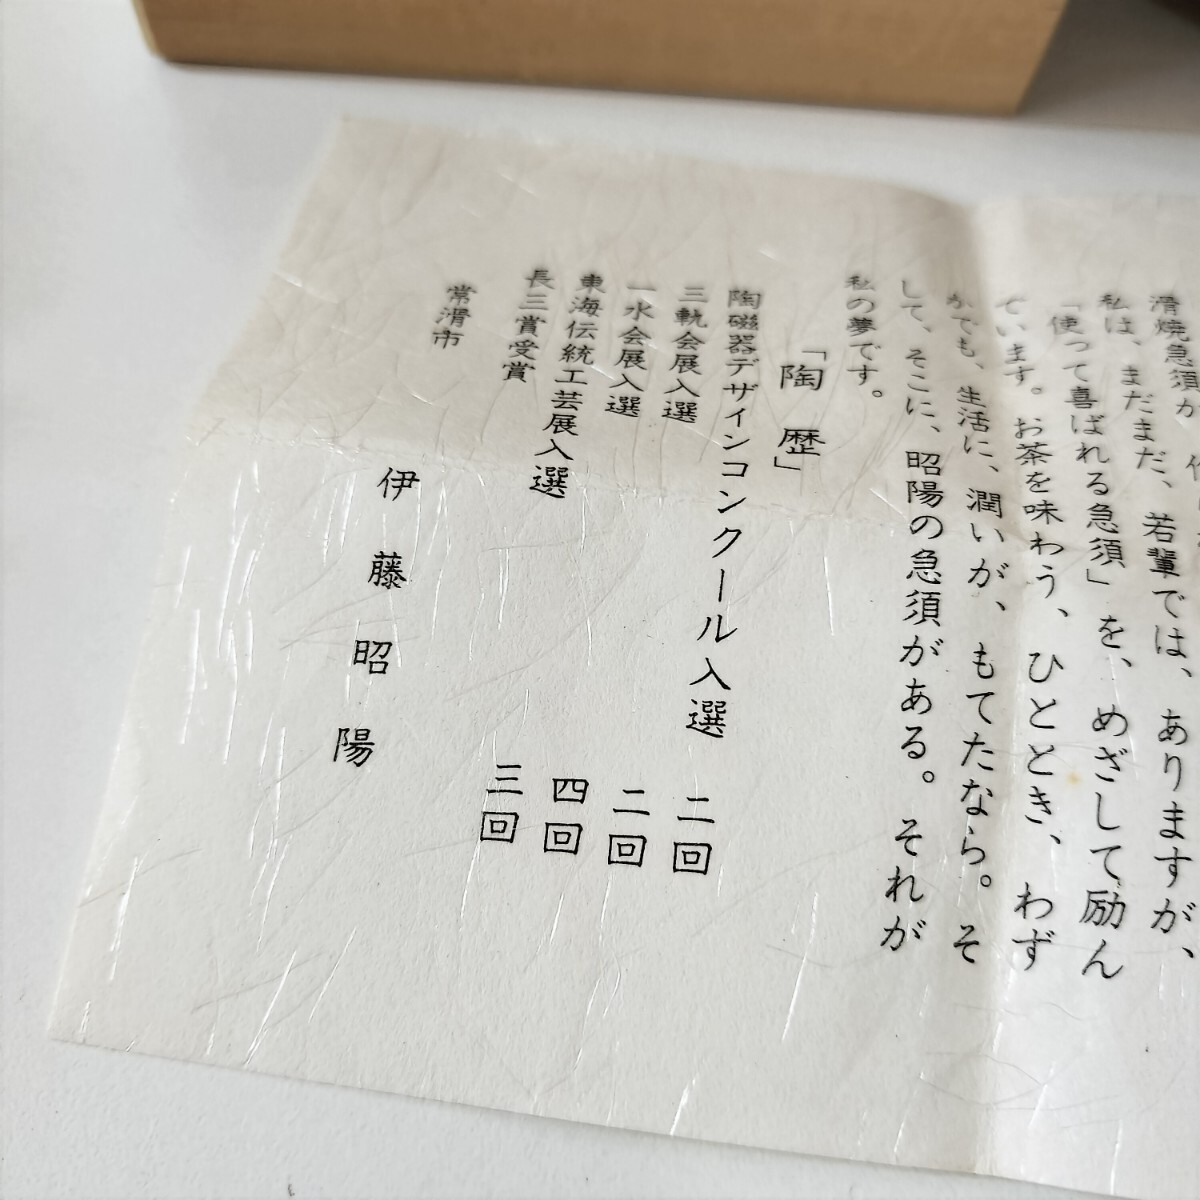 滑焼急須
私は、まだまだ、若輩では、ありますが、
「使って喜ばれる急須」を、めざして励ん
でいます。お茶を味わう、ひととき、わず
かでも、生活に、潤いが、もてたなら。そ
して、そこに、昭陽の急須がある。それが
私の夢です。
「陶歴」
陶磁器デザインコンクール入選 二回
三軌会展入選 二回
一水会展入選 四回
東海伝統工芸展入選 三回
長三賞受賞
常滑市
伊藤昭陽